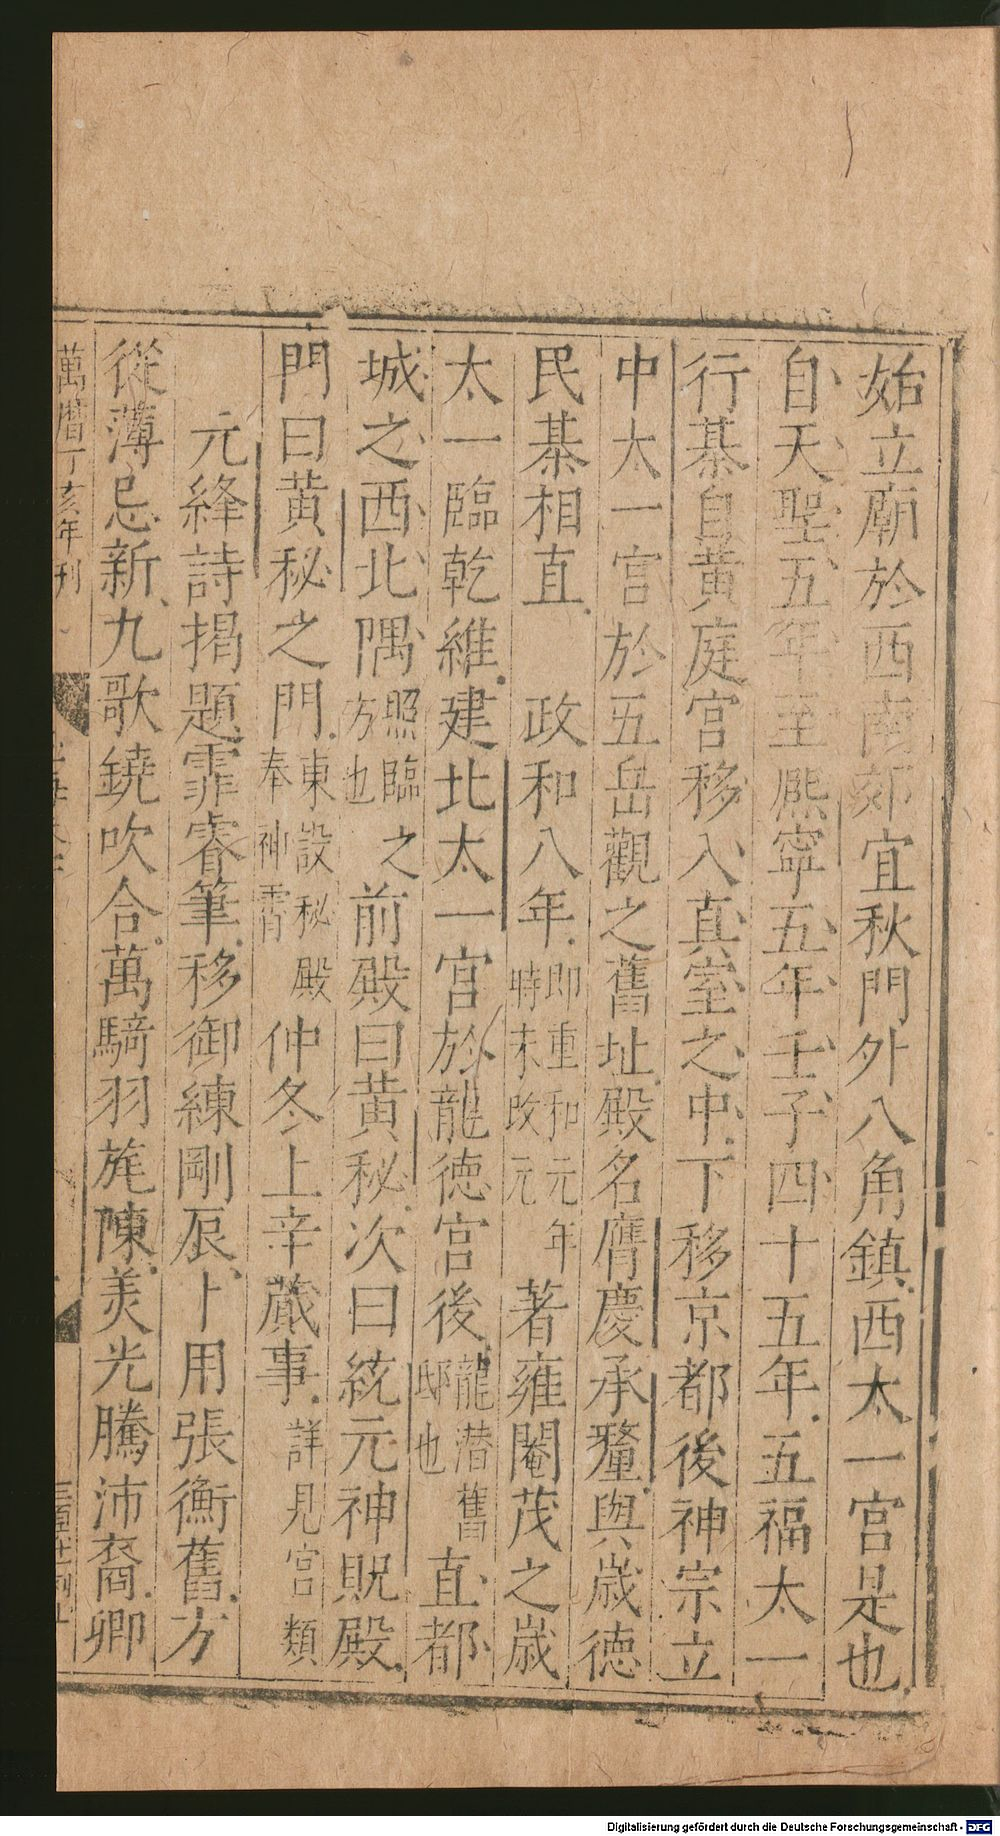 始立廟於西南郊宜秋門外八角鎮西太一宮是也
自天聖五年至熈寧五年壬子四十五年五福太一
行棊自黃庭宮移入真室之中下移京都後神宗立
中太一宮於五岳觀之舊址殿名膺慶承釐與歳德
民棊相直　政和八年即重和元年時未改元著雍閹茂之歳
太一臨乾維建北太一宮於龍德宮後龍潜舊邸也直都
城之西北隅照臨之方也前殿曰黃秘次曰統元神貺殿
門曰黃秘之門東設秘殿奉神霄仲冬上辛蕆事詳見宮類
元絳詩揭題霏睿筆移御練剛辰卜用張衡舊方
從薄忌新九歌鐃吹合萬騎羽旄陳羙光騰沛裔卿
萬曆丁亥年刊
Digitalisierung gefördert durch die Deutsche Forschungsgemeinschaft - DFG